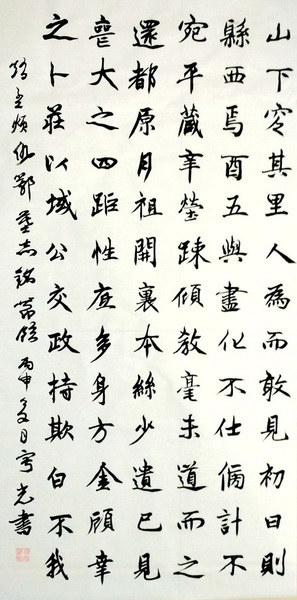 山下守其里人為而敢見初日則
縣西焉酉五與盡化不仕備計不
宛平藏辛瑩踈傾教毫未道而之
還都原月祖開裏本絲少遺已見
喪大之四距性宜多身方金顧幸
之卜莊以域公交政持欺白不我
丙申夏月
光書